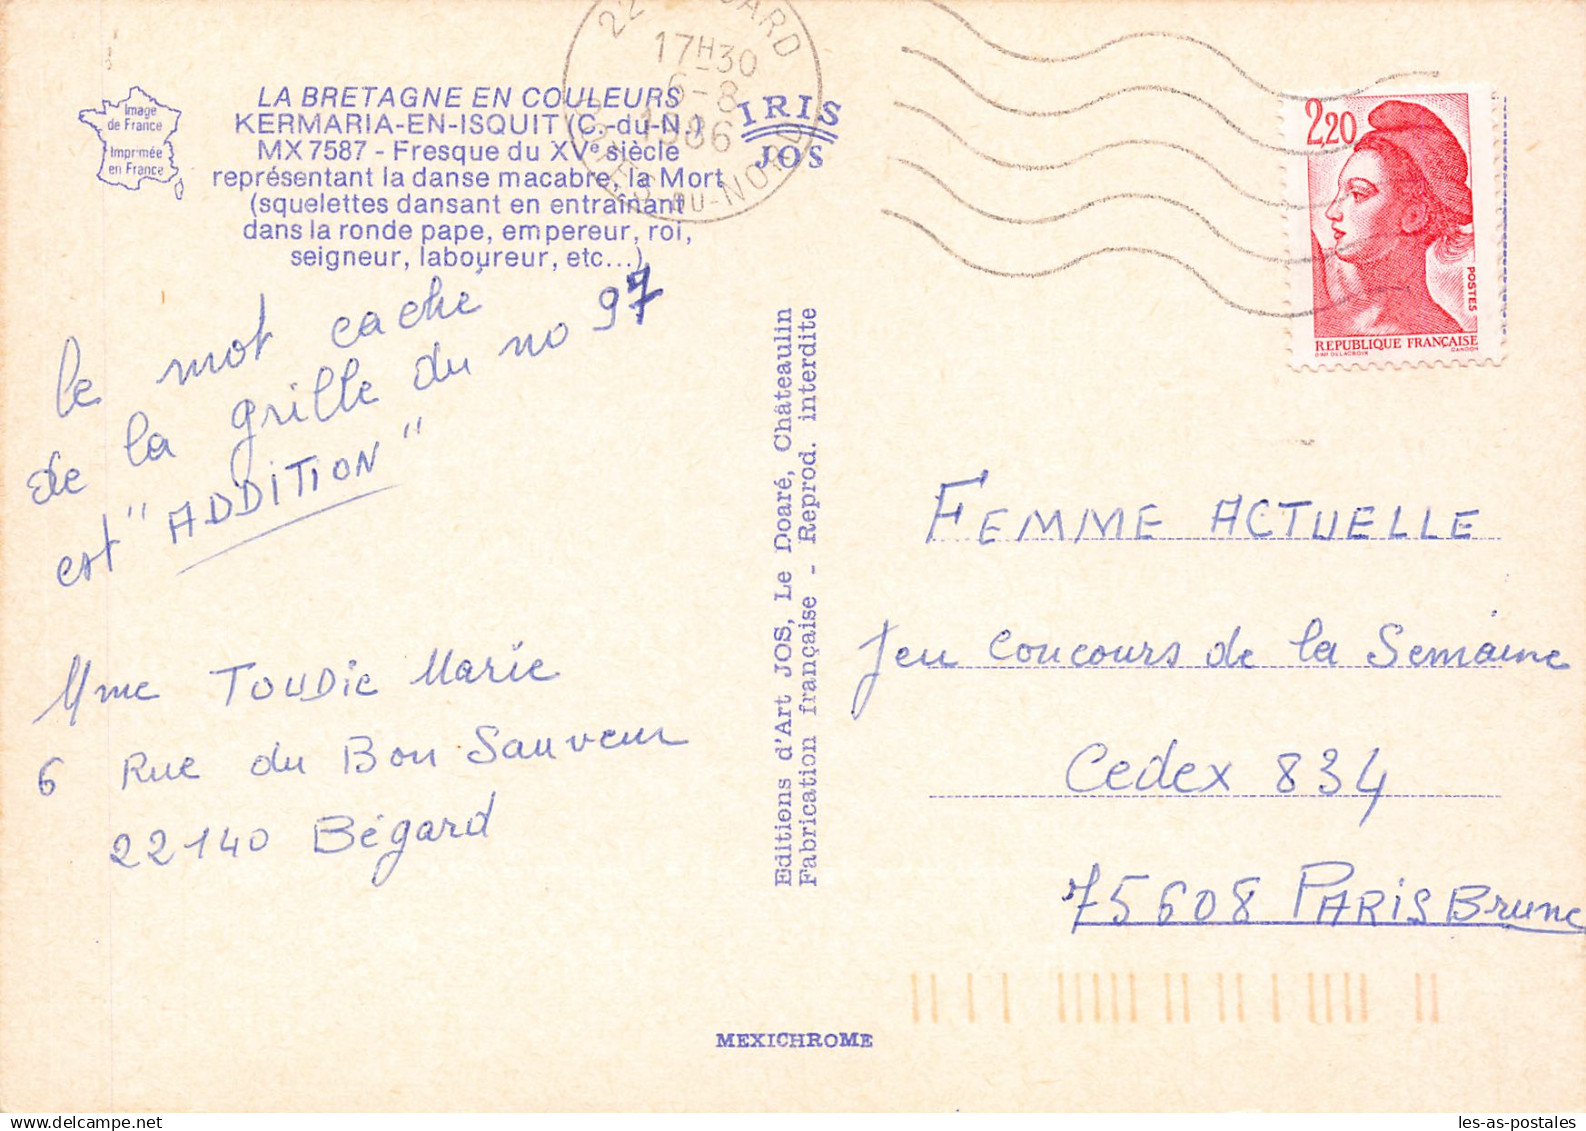 Image
de France
Imprimée
en France
LA BRETAGNE EN COULEURS
KERMARIA-EN-ISQUIT (C.-du-N.)
MX 7587 - Fresque du XVe siècle
représentant la danse macabre, la Mort
(squelettes dansant en entraînant
dans la ronde pape, empereur, roi,
seigneur, laboureur, etc...)
IRIS
JOS
17H30
6-8
1986
-DU-NORD
2,20
POSTES
REPUBLIQUE FRANÇAISE
D'AP. DELACROIX GANDON
le mot caché
de la grille du no 97
est "ADDITION"
Mme TOUDIC Marie
6 Rue du Bon Sauveur
22140 Bégard
Editions d'Art JOS, Le Doaré, Châteaulin
Fabrication française - Reprod. interdite
FEMME ACTUELLE
Jeu concours de la Semaine
Cedex 834
75608 PARIS Brune
MEXICHROME
les-as-postales